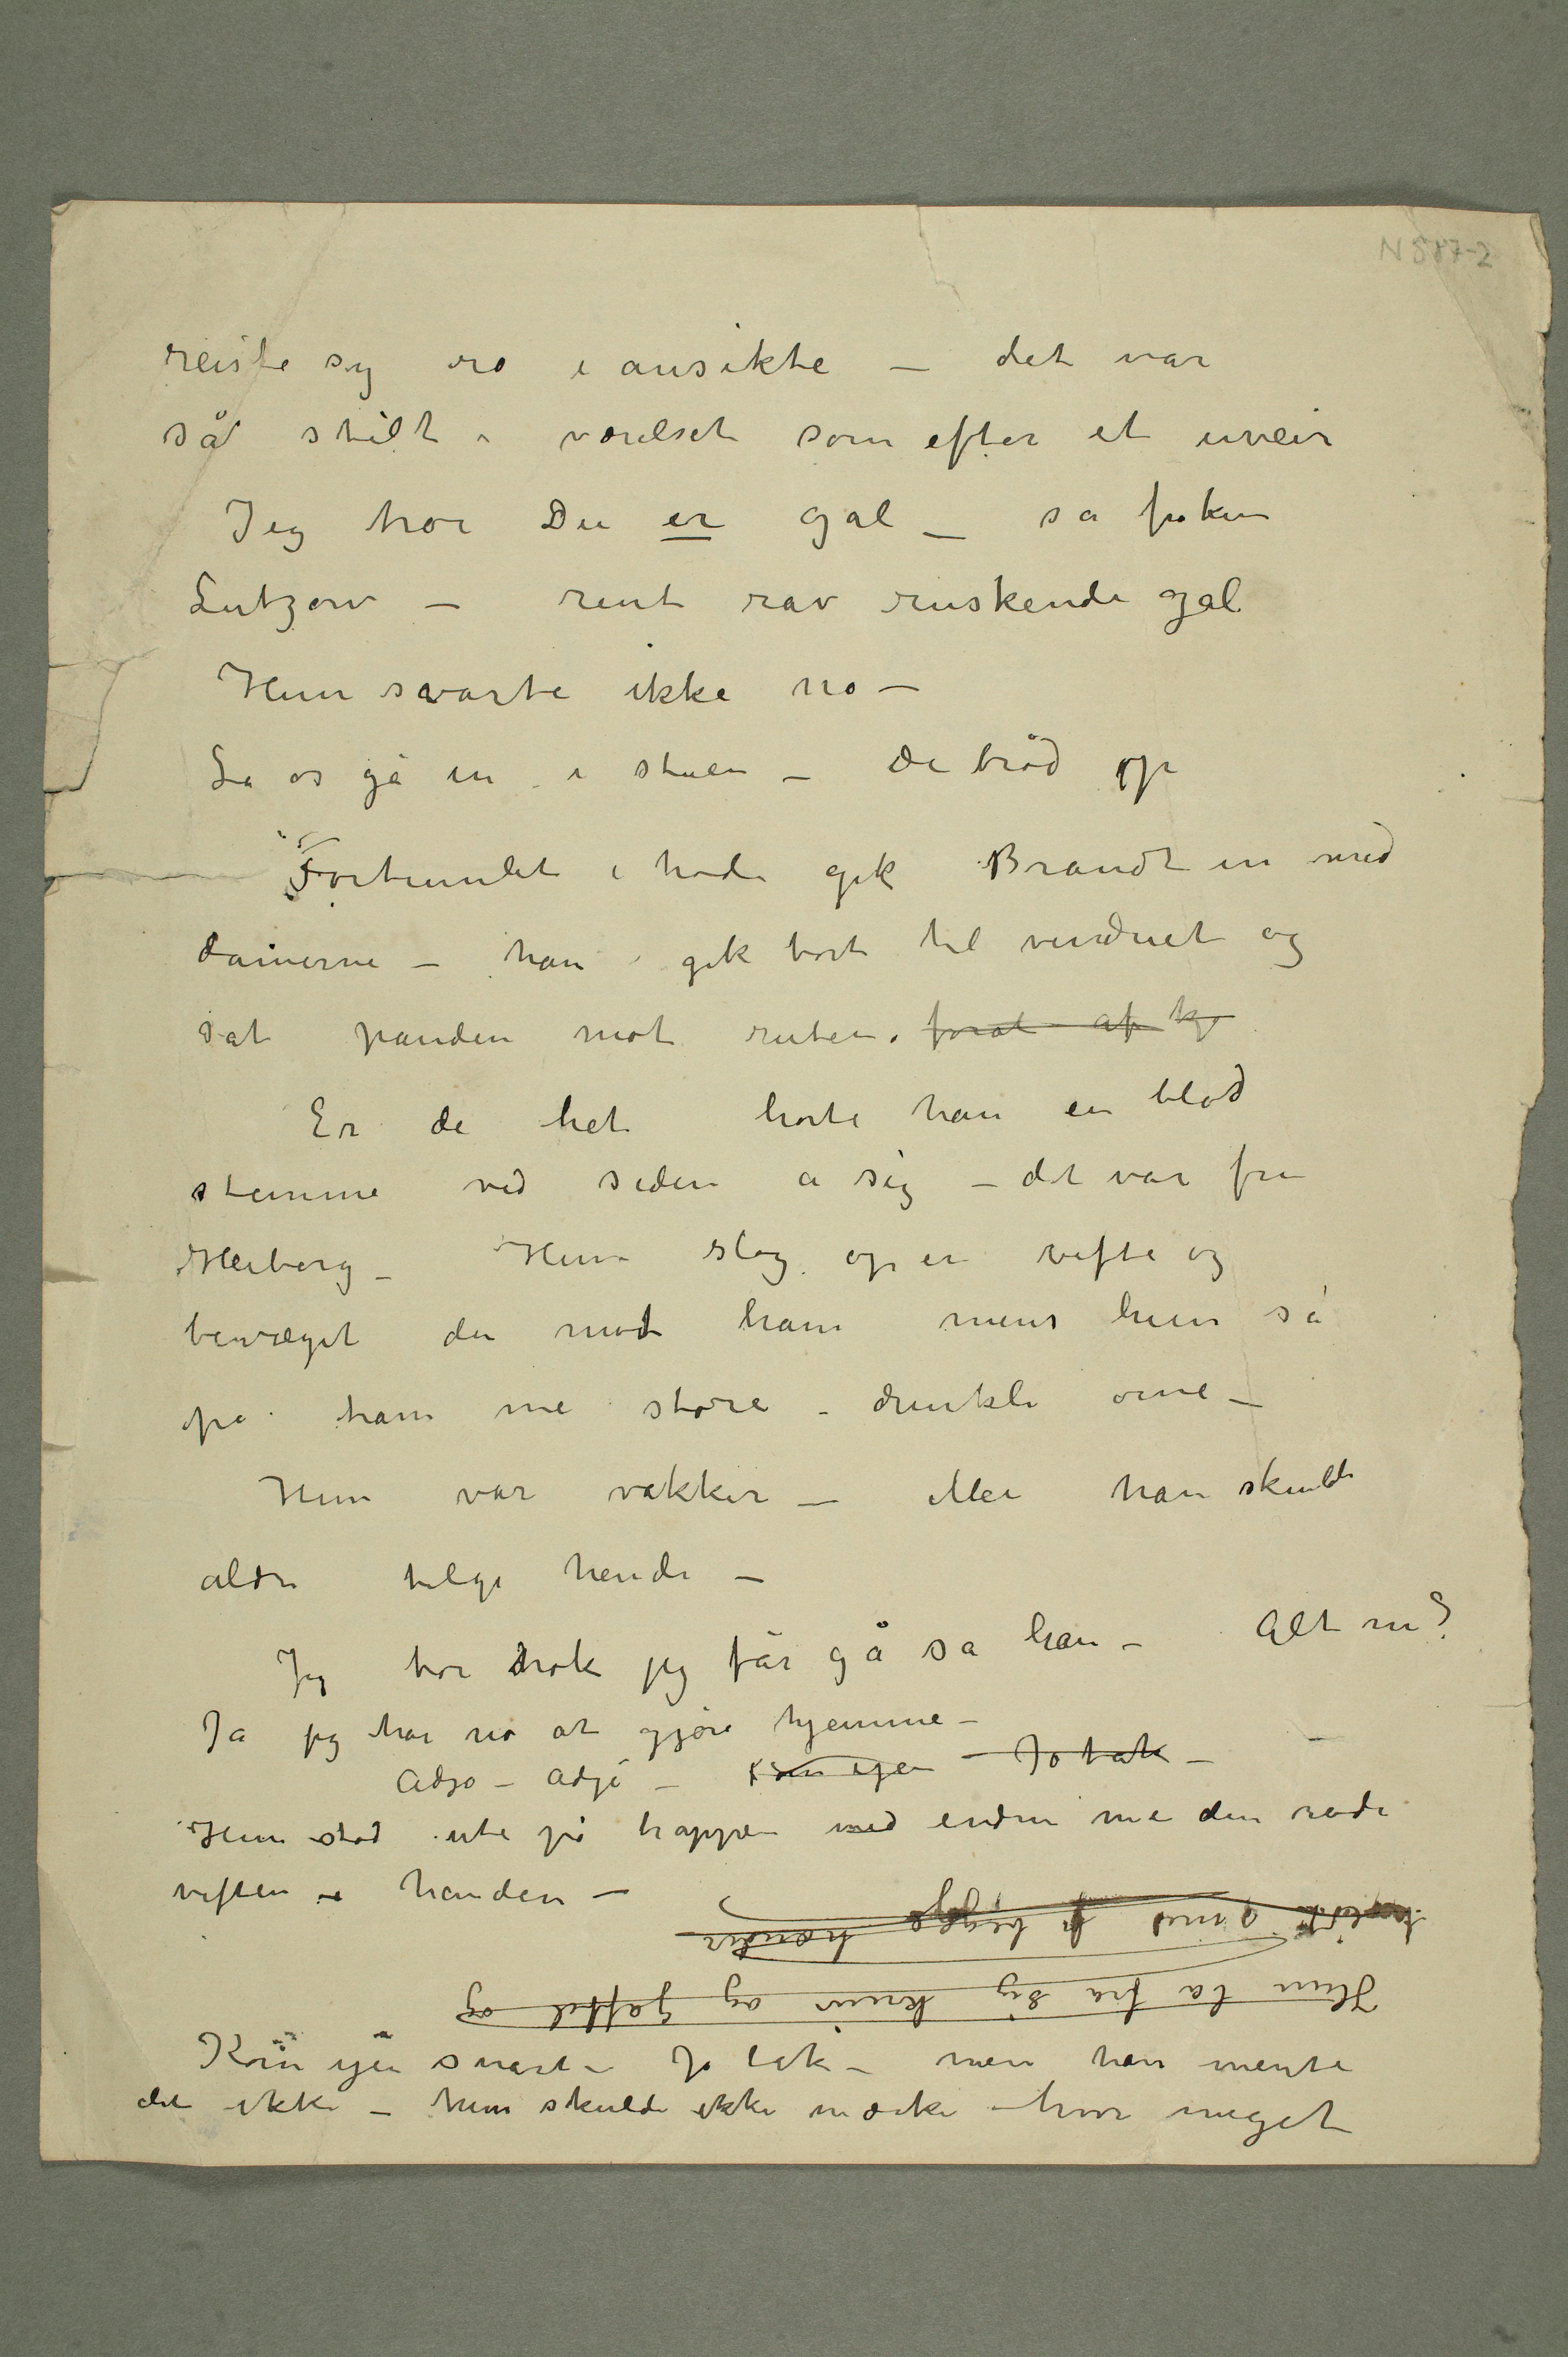 N 587-2
reiste sig rø i ansikte – det var
så stilt i værelset som efter et uveir
Jeg tror Du er gal – sa frøken
Lutzow – rent rav ruskende gal
Hun svarte ikke no –
La os gå in i stuen – de brød op
Fortumlet i hode gik Brandt in med
damerne – han gik bort til vinduet og
sat panden mot ruten. foråt af kjø
Er de het hørte han en blød
stemme ved siden a sig – det var fru
Heiberg – Hun slog op en vifte og
bevæget den mod ham mens hun så
på ham me store – dunkle øine –
Hun var vakker – Men han skulde
aldri tilgi hende –
Jeg tror nok jeg får gå sa han – Alt nu?
Ja jeg har no at gjøre hjemme –
Adjø – adjø – Kom igjen – Jo tak –
Hun stod ute på trappen med endnu me den røde
viften i handen –
Hun la fra sig kniv og gaffel og
med begge hænder
Kom igjen snart – Jo tak – men han mente
det ikke – hun skulde ikke mærke hvor meget